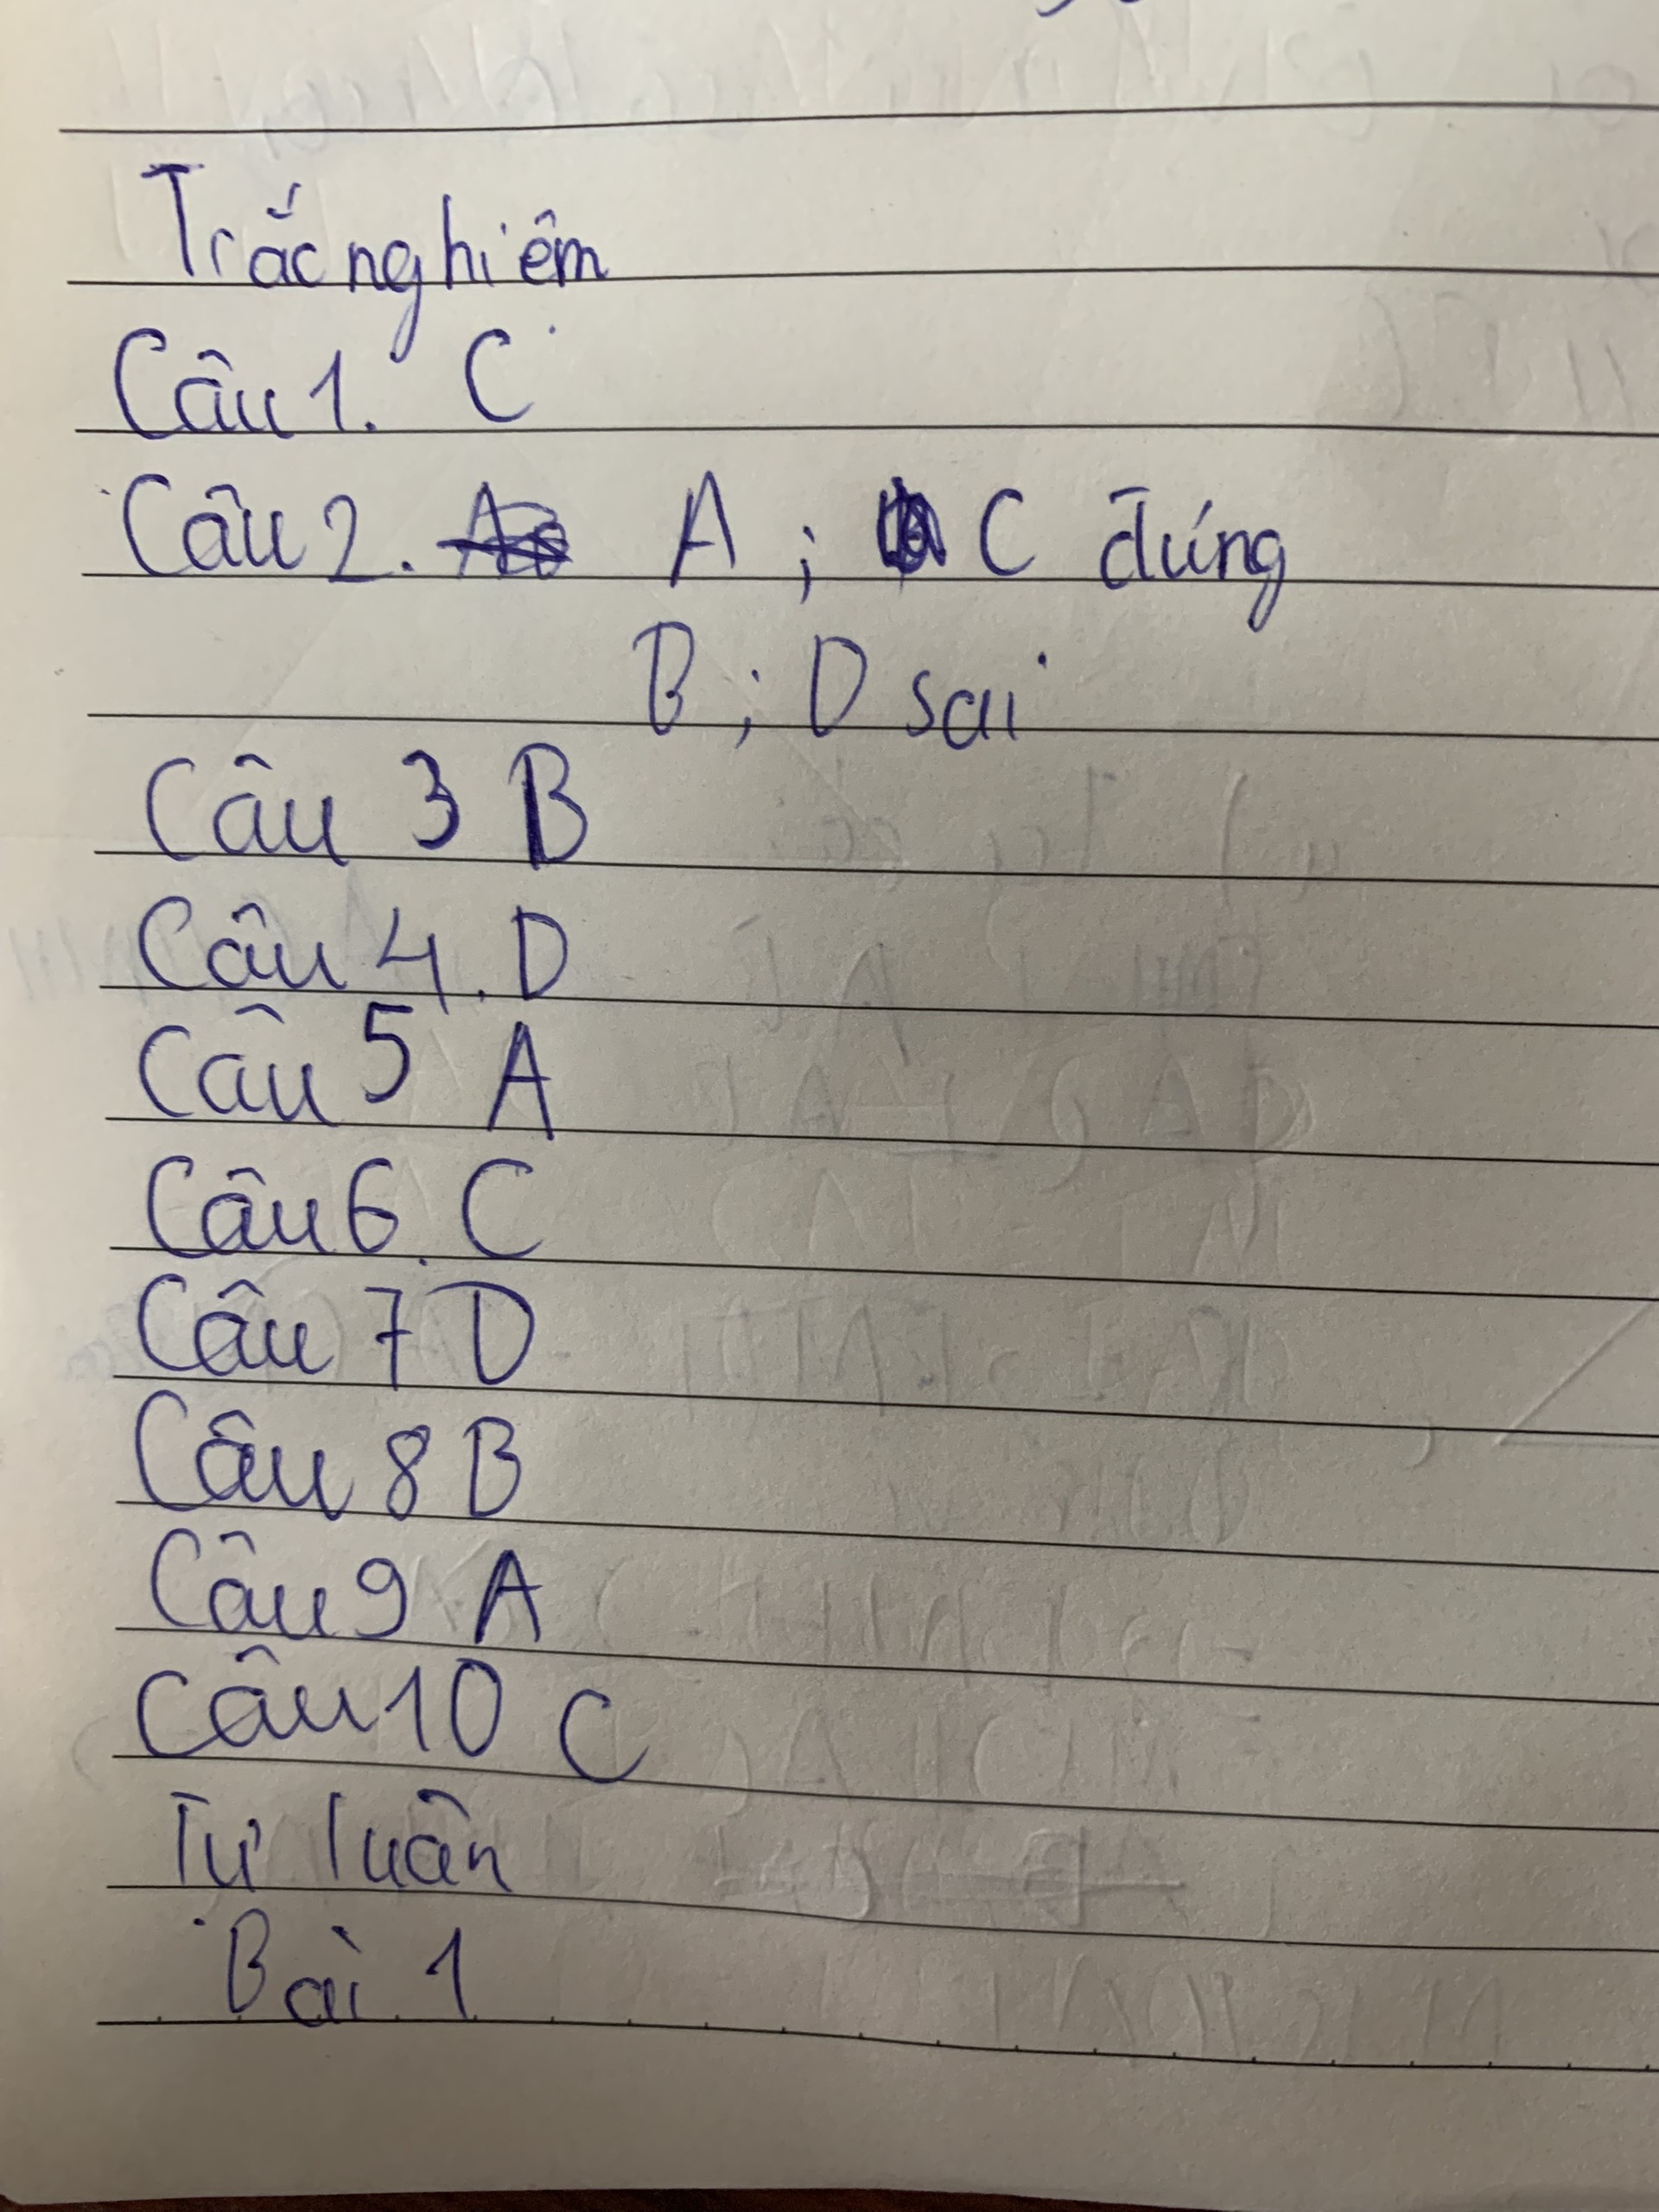 Trắc nghiệm
Câu 1. C
Câu 2. A ; C đúng
B ; D sai
Câu 3 B
Câu 4. D
Câu 5 A
Câu 6. C
Câu 7 D
Câu 8 B
Câu 9 A
Câu 10 C
Tự luận
Bài 1